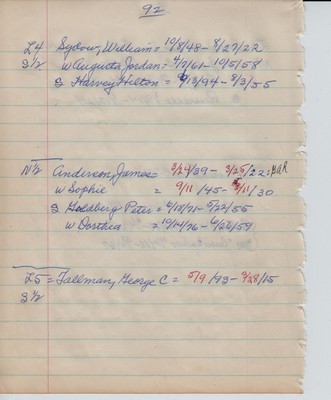 92
L4 Sydow, William = 10/8/48 - 8/27/22
S 1/2 w Augusta Jordan = 4/7/61 - 10/5/58
S Harvey Hilton = 9/13/94 - 8/3/55
N 1/2 Anderson, James = 3/24/39 - 3/25/22 : GAR
w Sophie = 9/11/45 - 3/11/30
S Goldberg Peter = 6/18/71 - 5/22/55
w Dorthea = 10/14/76 - 6/26/59
L5 = Tallman, George C = 5/9/93 - 9/28/15
S 1/2